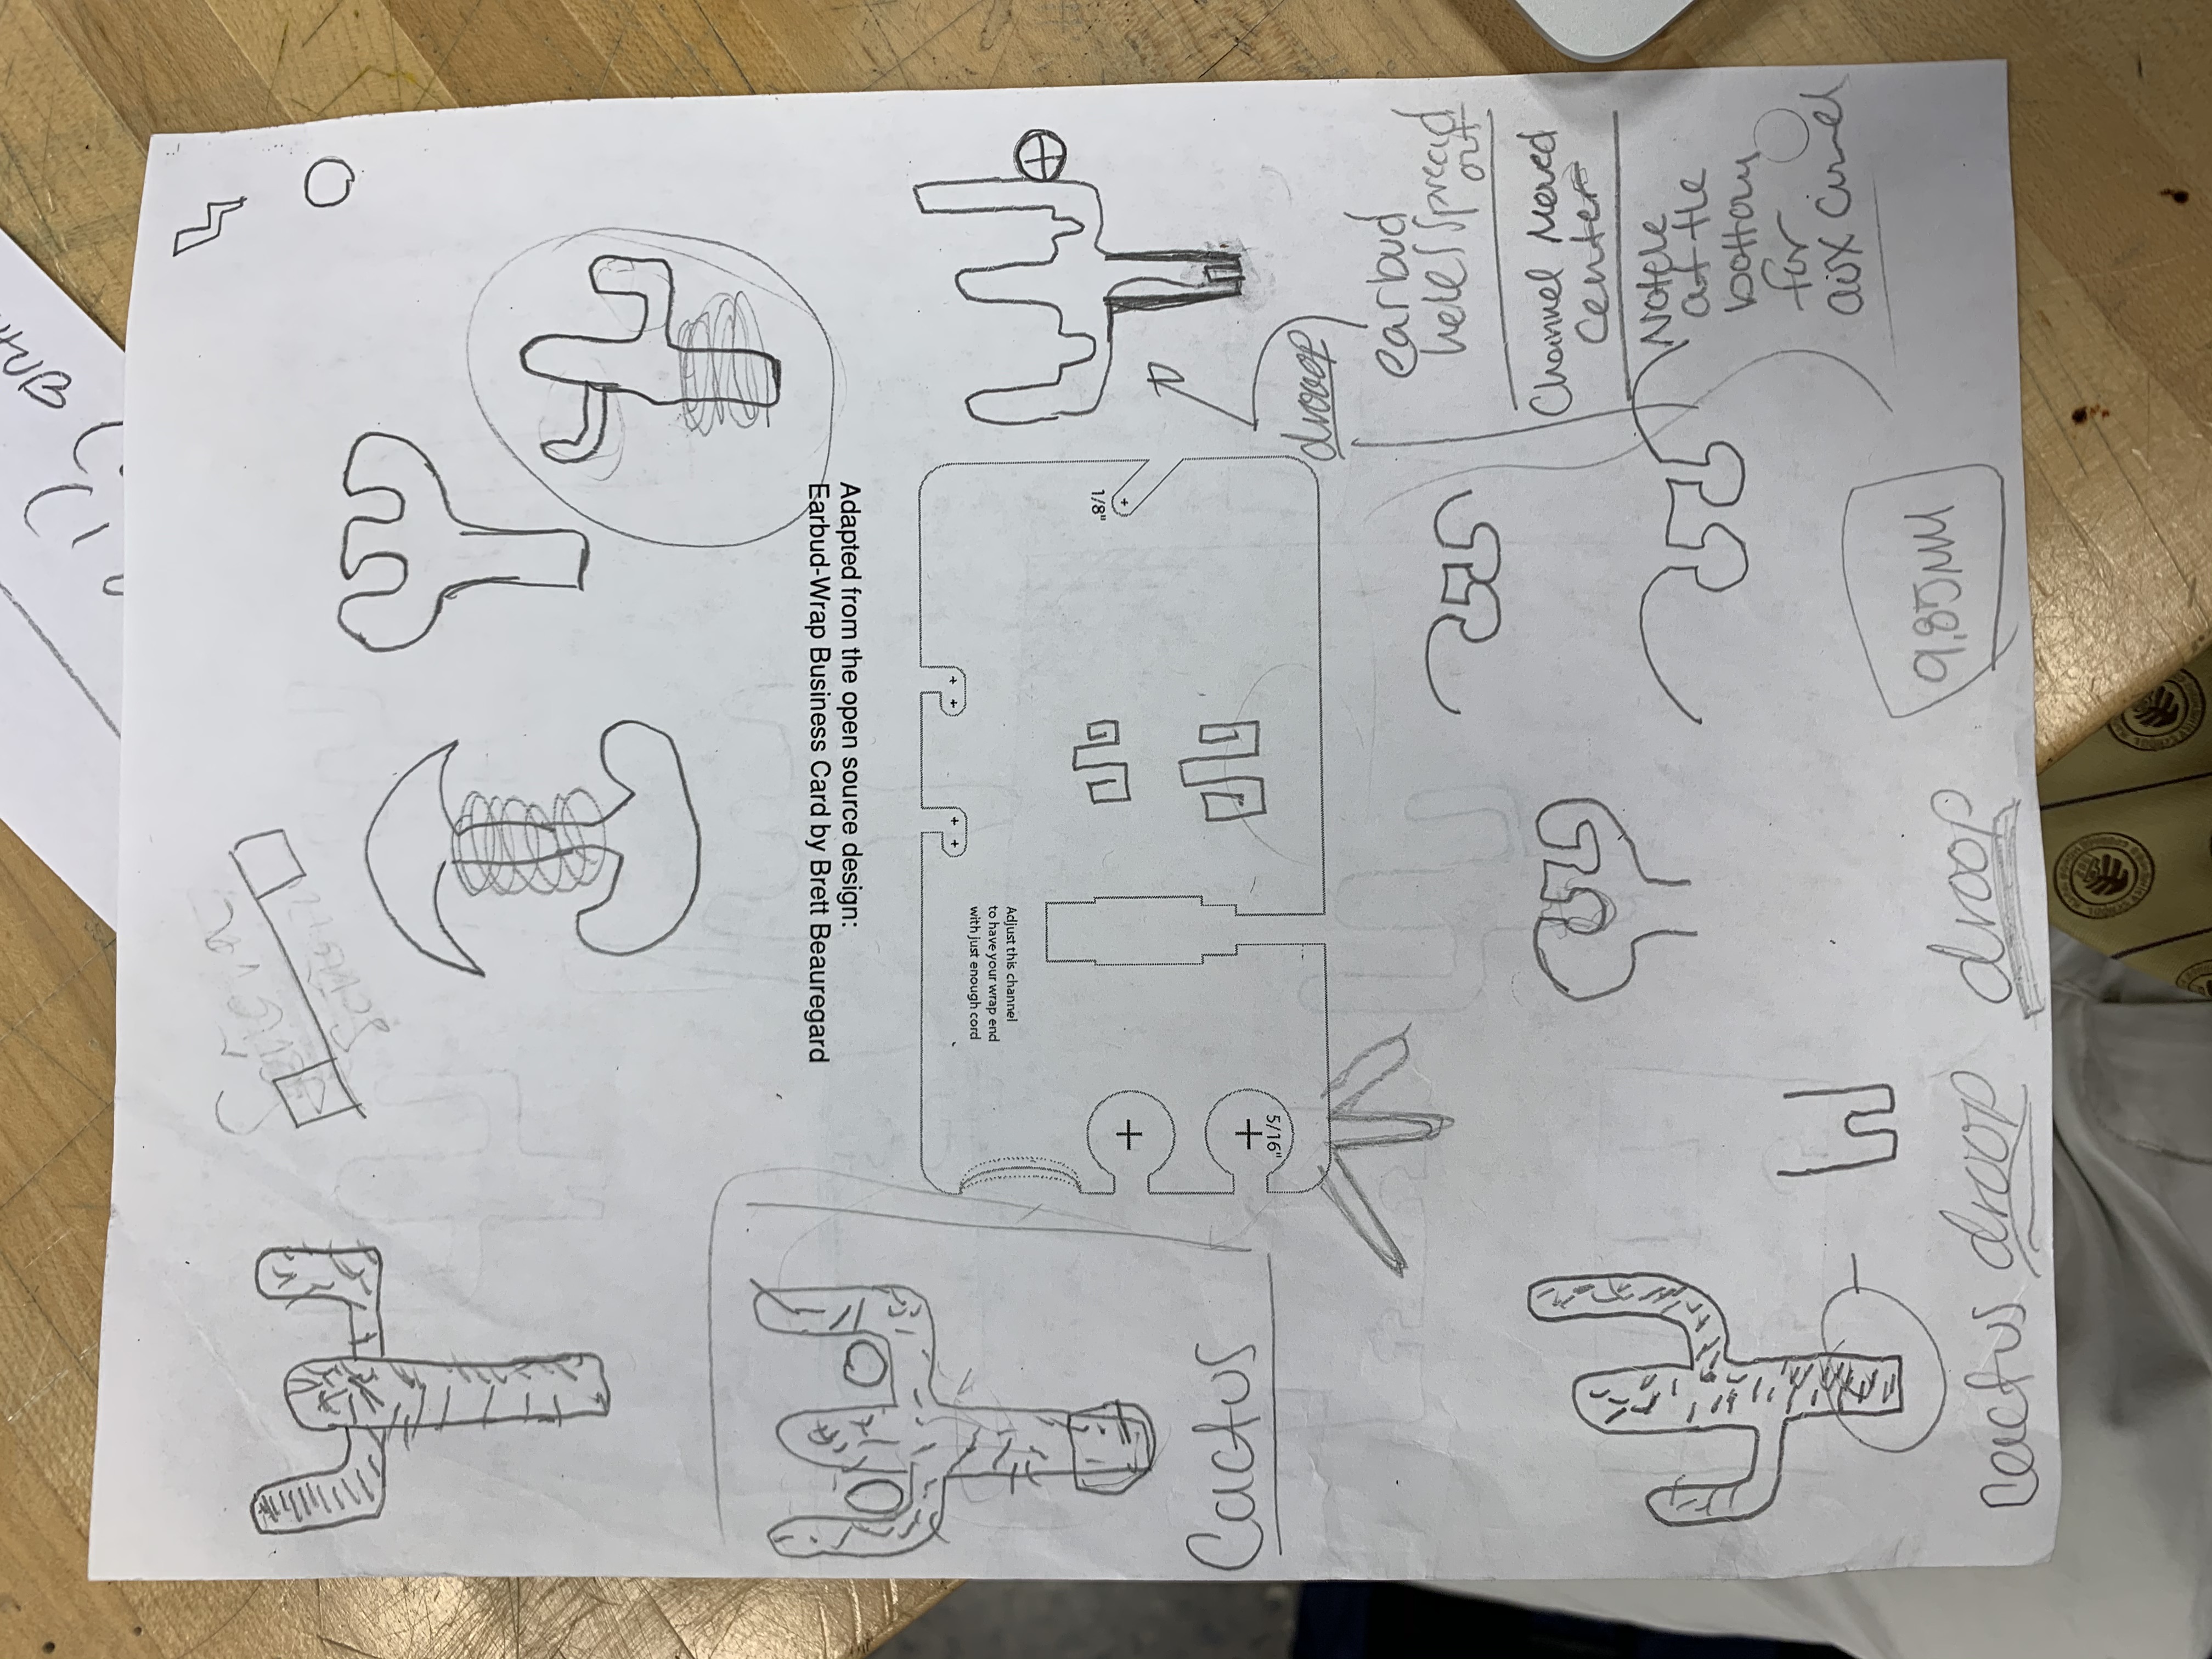 Cactus
Adapted from the open source design:
Earbud-Wrap Business Card by Brett Beauregard
Adjust this channel
to have your wrap end
with just enough cord
1/8"
5/16"
drooop
earbud
holes spread
out
Channel Moved
Center
Notch
at the
bottom
for
aux
cactus droop droop
9.85MM